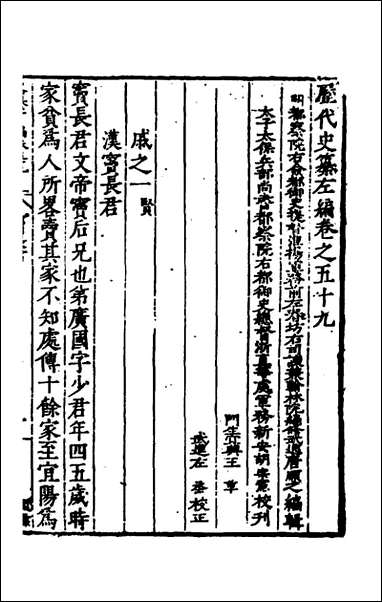 歷代史纂左編卷之五十九
明都察院右僉都御史提督淮揚軍務前左春坊右司諫兼翰林院編修武進唐順之編輯
太子太保兵部尚書都察院右都御史總督浙直等處軍務新安胡宗憲校刊
門生王革
武進左烝校正
戚之一賢
漢竇長君
竇長君文帝竇后兄也弟廣國字少君年四五歲時
家貧爲人所畧賣其家不知處傳十餘家至宜陽爲